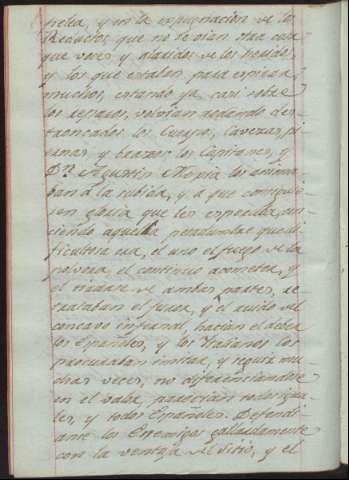 pelea, y en la expugnacion de los
Reductos, que no se oian otra cosa
que voces y alaridos de los heridos
y los que estaban para espirar
muchos, estando ya casi sobre
los reparos, volvian rodando des-
troncados los Cuerpos, Cavezas, pi-
ernas y brazos: los Capitanes, y
Dn. Agustin Mexia los anima-
ban á la subida, y á que consiguie-
sen gloria que les esperaba, su-
biendo aquella
el uno el fuego de la
polvora, el continuo acometer, y
el de ambas partes, re-
trataban el furor, y el ruido del
concavo infernal, hacian el deber
los Españoles, y los Italianos los
procuraban imitar, y seguir mu-
chas veces, no diferenciandose
en el valor, parecian todos igua-
les, y todos Españoles. Defendi-
anse los Enemigos gallardamente
con la ventaja del sitio, y el